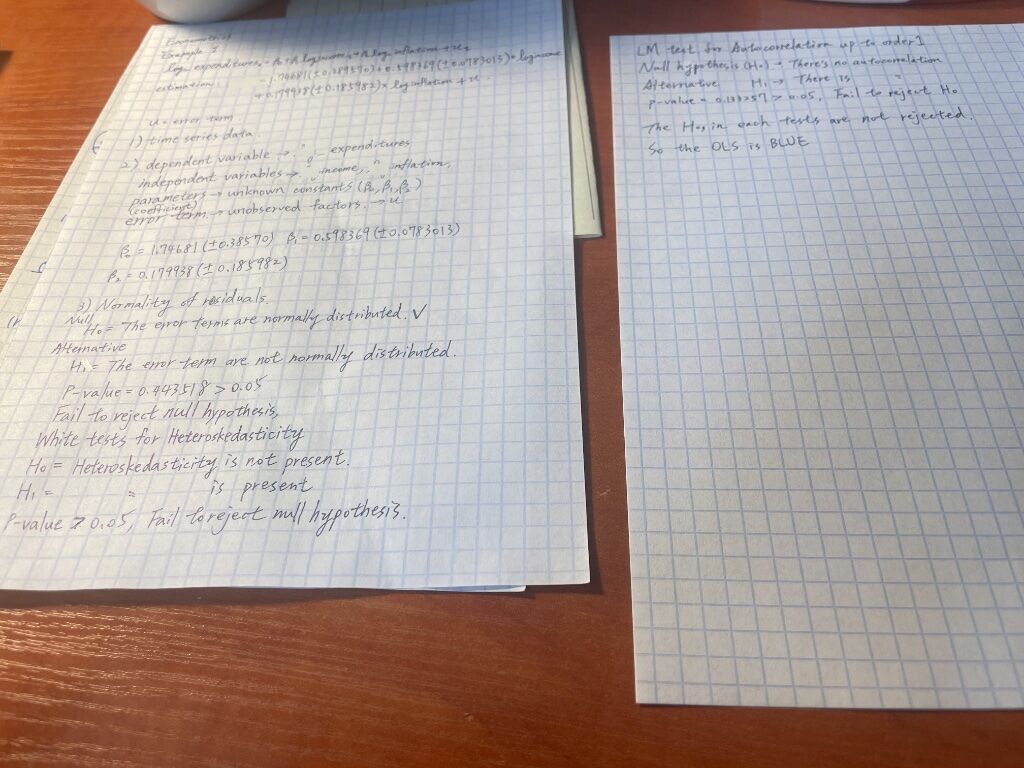 Econometrics
Example 1
log expenditures = β₀ + β₁ log income + β₂ log inflation + u
estimation: = 1.74681(±0.385570) + 0.598369(±0.0783013) × log income
+ 0.179938(±0.185982) × log inflation + u
u = error term
1) time series data
2) dependent variable → " expenditures
independent variables → " income, " inflation,
parameters → unknown constants (β₀, β₁, β₂)
(coefficient)
error term → unobserved factors. → u
β₀ = 1.74681 (±0.38570) β₁ = 0.598369 (±0.0783013)
β₂ = 0.179938 (±0.185982)
3) Normality of residuals.
Null
H₀ = The error terms are normally distributed. ✓
Alternative
H₁ = The error term are not normally distributed.
P-value = 0.443518 > 0.05
Fail to reject null hypothesis,
White tests for Heteroskedasticity
H₀ = Heteroskedasticity is not present.
H₁ = " is present
P-value > 0.05, Fail to reject null hypothesis.
LM test for Autocorrelation up to order 1
Null hypothesis (H₀) → There's no autocorrelation
Alternative H₁ → There is "
p-value = 0.133257 > 0.05, Fail to reject H₀
The H₀s in each tests are not rejected.
So the OLS is BLUE